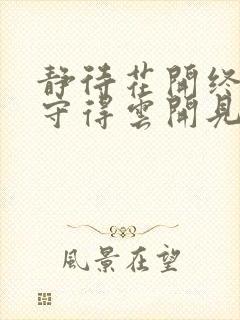 静待花開终
守得雲開見
風景在望